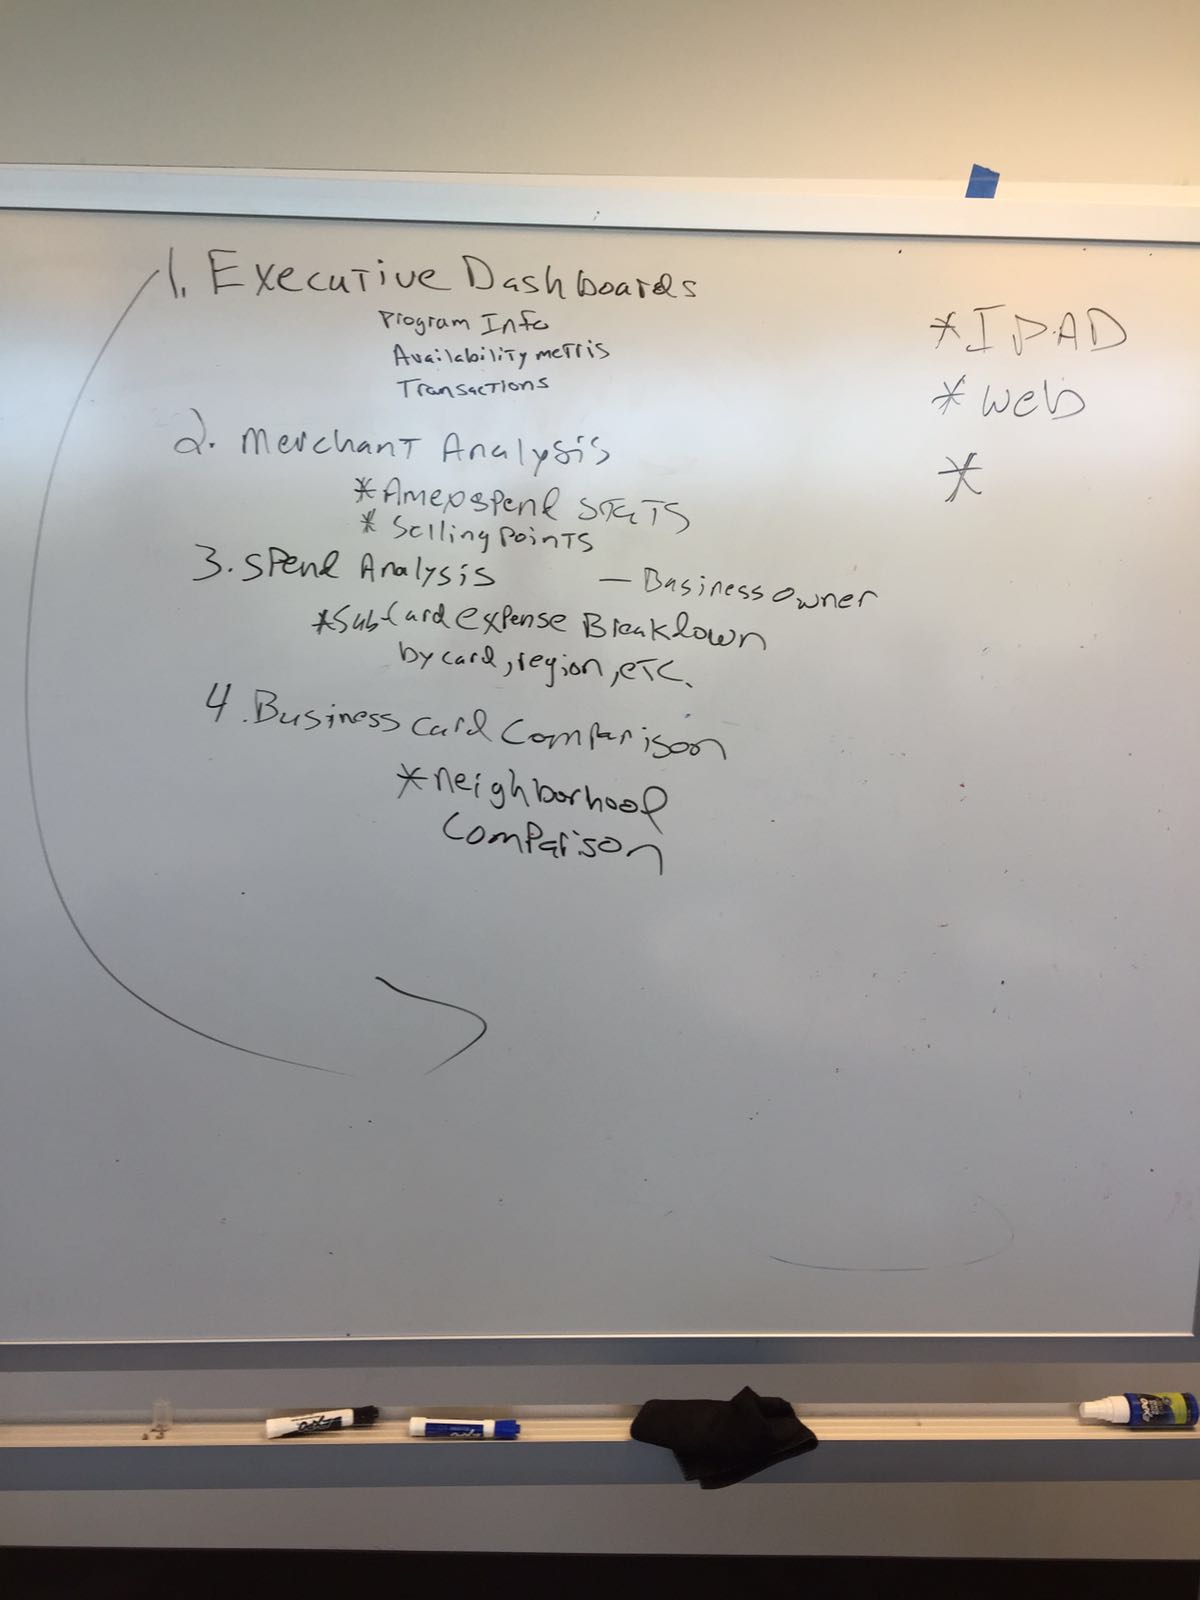 1. Executive Dashboards
Program Info
Availability metris
Transactions
2. Merchant Analysis
* Amex spend STATS
* Selling Points
3. Spend Analysis — Business owner
* Sub-Card expense Breakdown
by card, region, ETC.
4. Business Card Comparison
* neighborhood
Comparison
* IPAD
* web
*
EXPO